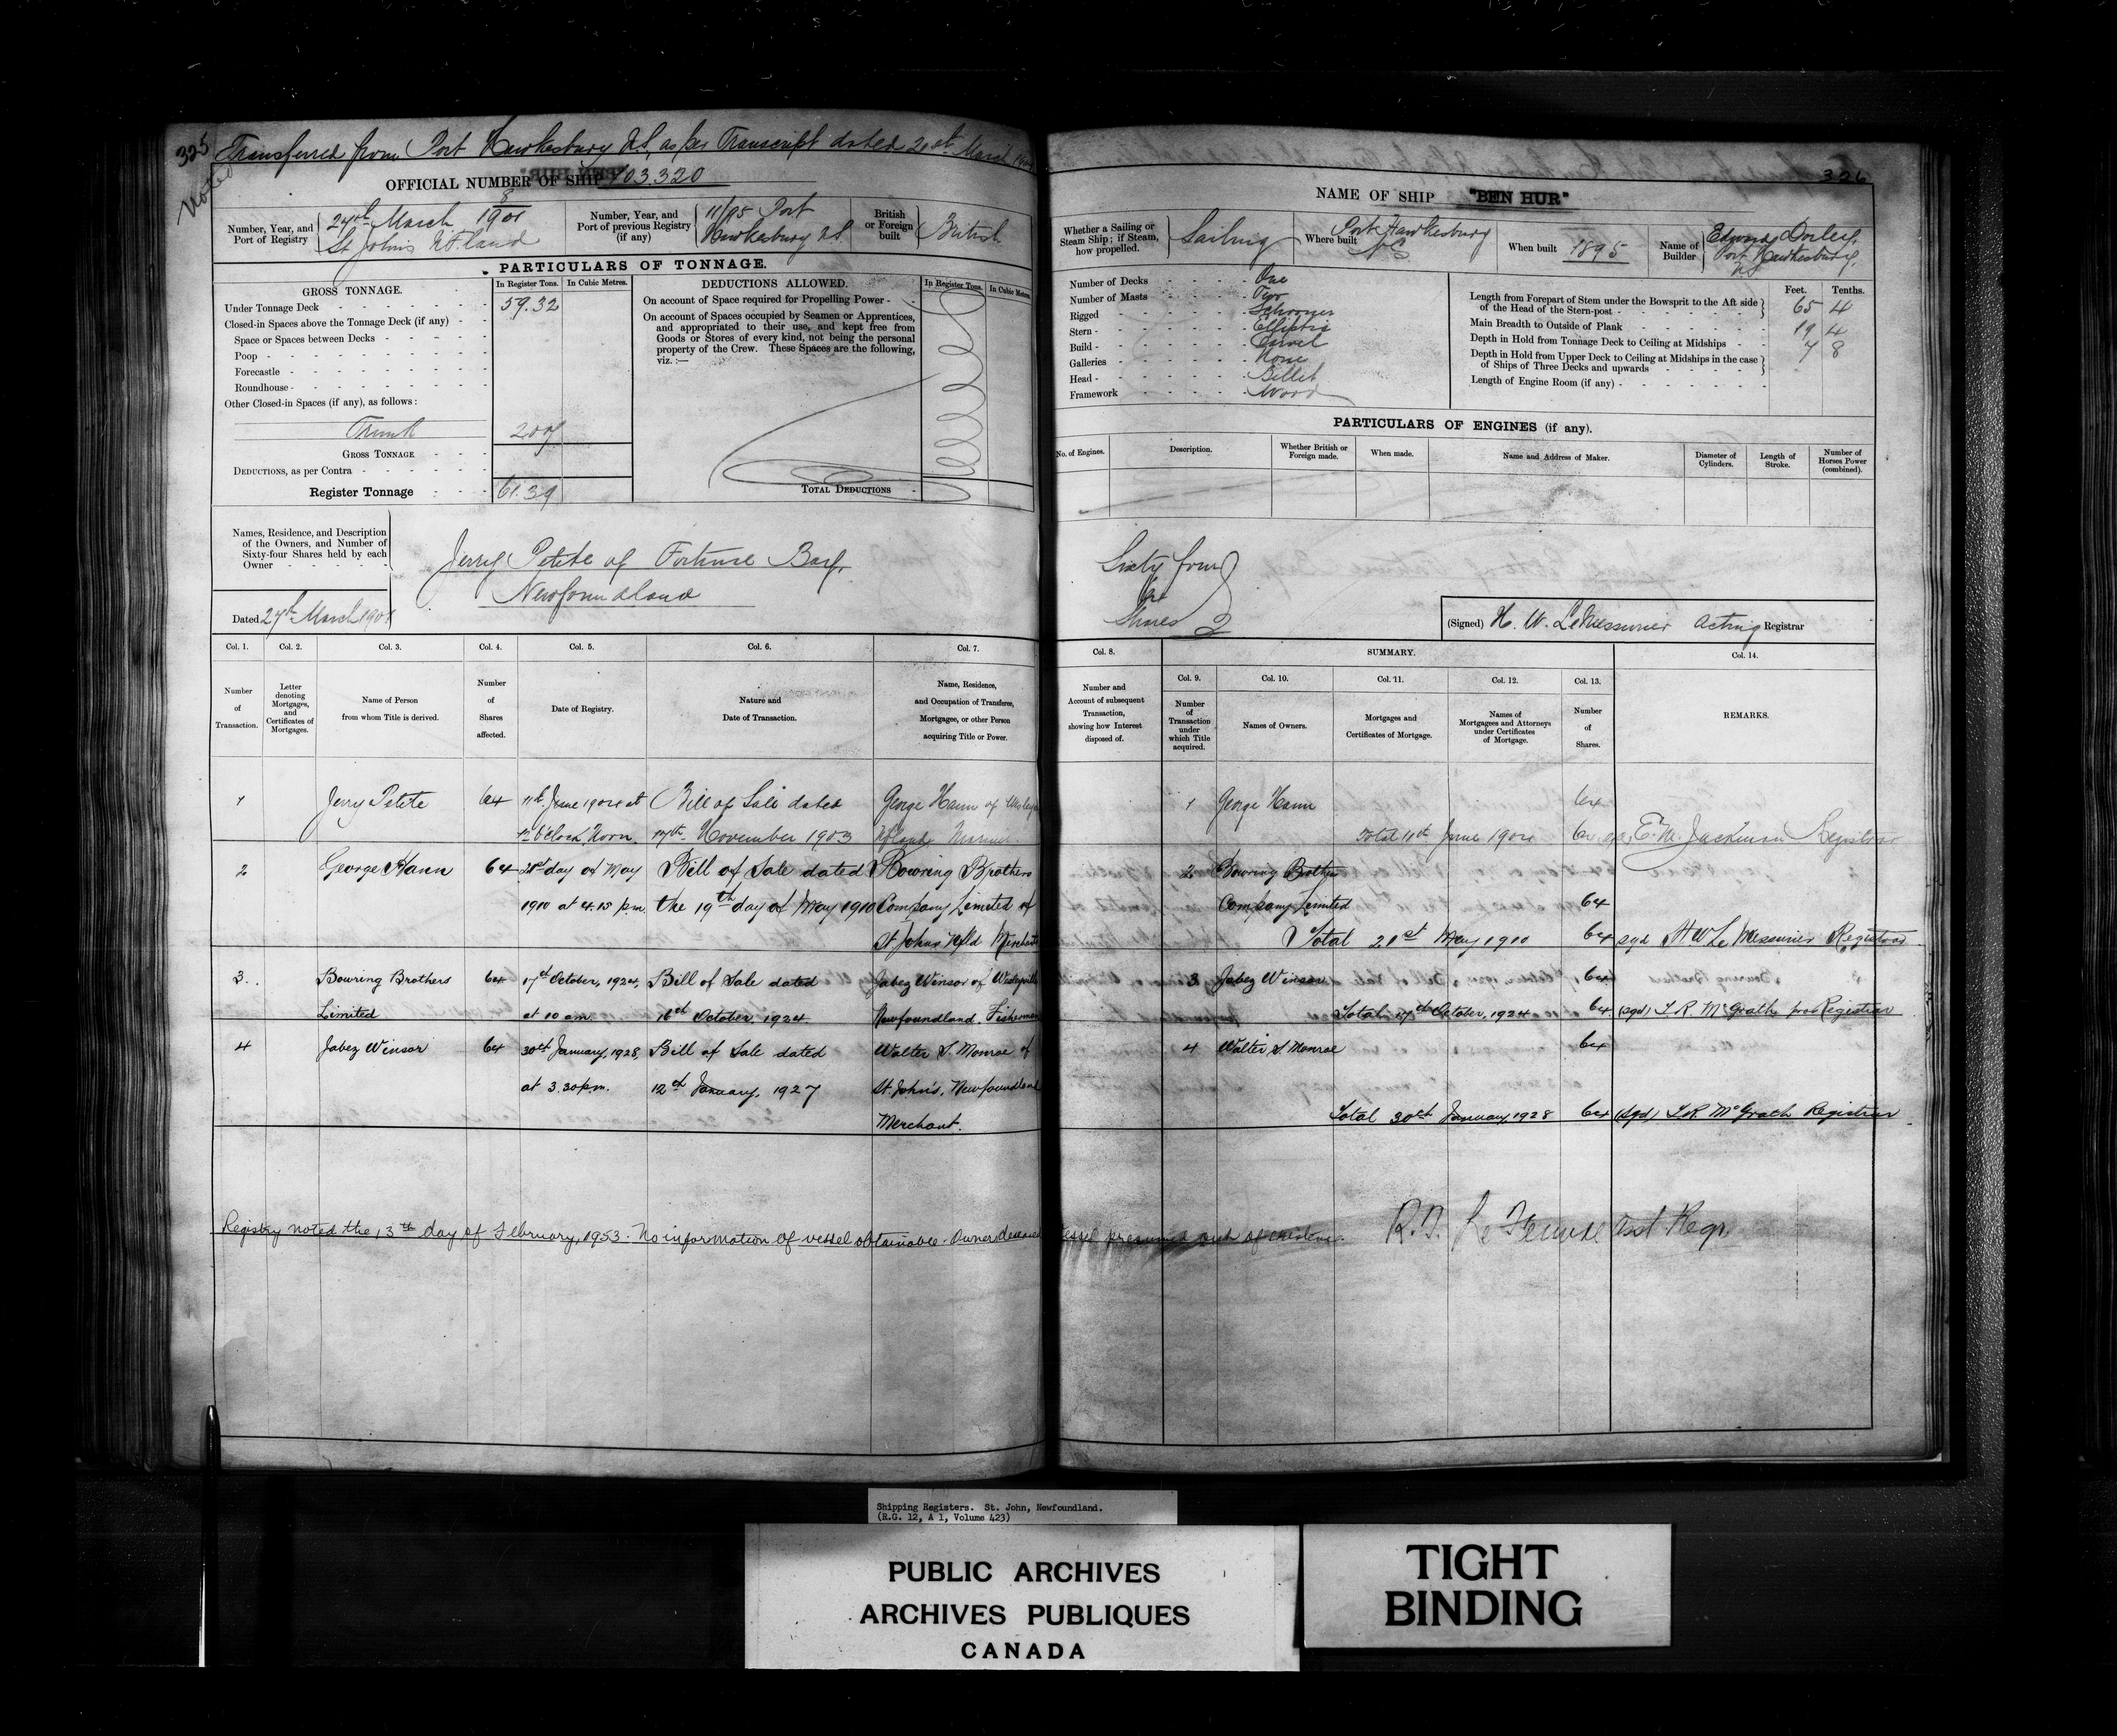 325
Noted
Transferred from Port Hawkesbury N.S, as per Transcript dated 20th March
OFFICIAL NUMBER OF SHIP 103.320
Number, Year, and Port of Registry
8
24th March 1901
St John's N.F.land
Number, Year, and Port of previous Registry (if any)
11/95 Port
Hawkesbury N.S.
British or Foreign built
British
PARTICULARS OF TONNAGE.
GROSS TONNAGE.
In Register Tons.
In Cubic Metres.
Under Tonnage Deck
59.32
Closed-in Spaces above the Tonnage Deck (if any)
Space or Spaces between Decks
Poop
Forecastle
Roundhouse
Other Closed-in Spaces (if any), as follows:
Trunk
2.07
GROSS TONNAGE
DEDUCTIONS, as per Contra
Register Tonnage
61.39
DEDUCTIONS ALLOWED.
In Register Tons.
In Cubic Metres.
On account of Space required for Propelling Power
On account of Spaces occupied by Seamen or Apprentices,
and appropriated to their use, and kept free from
Goods or Stores of every kind, not being the personal
property of the Crew. These Spaces are the following,
viz.:—
TOTAL DEDUCTIONS
Names, Residence, and Description
of the Owners, and Number of
Sixty-four Shares held by each
Owner
Jerry Petite of Fortune Bay,
Newfoundland
Dated 27th March 1901
Col. 1.
Col. 2.
Col. 3.
Col. 4.
Col. 5.
Col. 6.
Col. 7.
Number of Transaction.
Letter denoting Mortgages, and Certificates of Mortgages.
Name of Person from whom Title is derived.
Number of Shares affected.
Date of Registry.
Nature and Date of Transaction.
Name, Residence, and Occupation of Transferee, Mortgagee, or other Person acquiring Title or Power.
1 Jerry Petite 64 11th June 1904 at Bill of Sale dated George Hann of
12 o'clock Noon. 17th November 1903 Nfland Mariner
2 George Hann 64 21st day of May Bill of Sale dated Bowring Brothers
1910 at 4.15 p.m. the 19th day of May 1910 Company Limited of
St Johns Nfld Merchants
3. Bowring Brothers 64 17th October, 1924, Bill of Sale dated Jabez Winsor of Wesleyville
Limited at 10 am. 16th October, 1924. Newfoundland. Fisherman
4 Jabez Winsor 64 30th January, 1928, Bill of Sale dated Walter S. Monroe of
at 3.30 p.m. 12th January, 1927 St. John's, Newfoundland
Merchant.
Registry noted the 13th day of February, 1953. No information of vessel obtainable. Owner deceased vessel presumed out of existence.
R.T. Asst Regr.
326
NAME OF SHIP "BEN HUR"
Whether a Sailing or Steam Ship; if Steam, how propelled.
Sailing
Where built
Port Hawkesbury
N S
When built
1895
Name of Builder
Edward
Port Hawkesbury,
N S
Number of Decks One
Number of Masts Two
Rigged Schooner
Stern Elliptic
Build Carvel
Galleries None
Head Billet
Framework Wood
Feet.
Tenths.
Length from Forepart of Stem under the Bowsprit to the Aft side of the Head of the Stern-post 65 4
Main Breadth to Outside of Plank 19 4
Depth in Hold from Tonnage Deck to Ceiling at Midships 7 8
Depth in Hold from Upper Deck to Ceiling at Midships in the case of Ships of Three Decks and upwards
Length of Engine Room (if any)
PARTICULARS OF ENGINES (if any).
No. of Engines.
Description.
Whether British or Foreign made.
When made.
Name and Address of Maker.
Diameter of Cylinders.
Length of Stroke.
Number of Horses Power (combined).
Sixty four
64
Shares
(Signed) H. W. LeMessurier Acting Registrar
Col. 8.
SUMMARY.
Col. 14.
Col. 9.
Col. 10.
Col. 11.
Col. 12.
Col. 13.
Number and Account of subsequent Transaction, showing how Interest disposed of.
Number of Transaction under which Title acquired.
Names of Owners.
Mortgages and Certificates of Mortgage.
Names of Mortgagees and Attorneys under Certificates of Mortgage.
Number of Shares.
REMARKS.
1 George Hann 64
Total 11th June 1904 64 E. M. Jackman Registrar
2 Bowring Brothers
Company Limited 64
Total 21st May 1910 64 sgd H W Le Messurier Registrar
3 Jabez Winsor 64
Total 17th October, 1924 64 (sgd) L R McGrath pro Registrar
4 Walter S. Monroe 64
Total 30th January, 1928 64 (Sgd) L.R. McGrath Registrar
Shipping Registers. St. John, Newfoundland.
(R.G. 12, A 1, Volume 423)
PUBLIC ARCHIVES
ARCHIVES PUBLIQUES
CANADA
TIGHT
BINDING